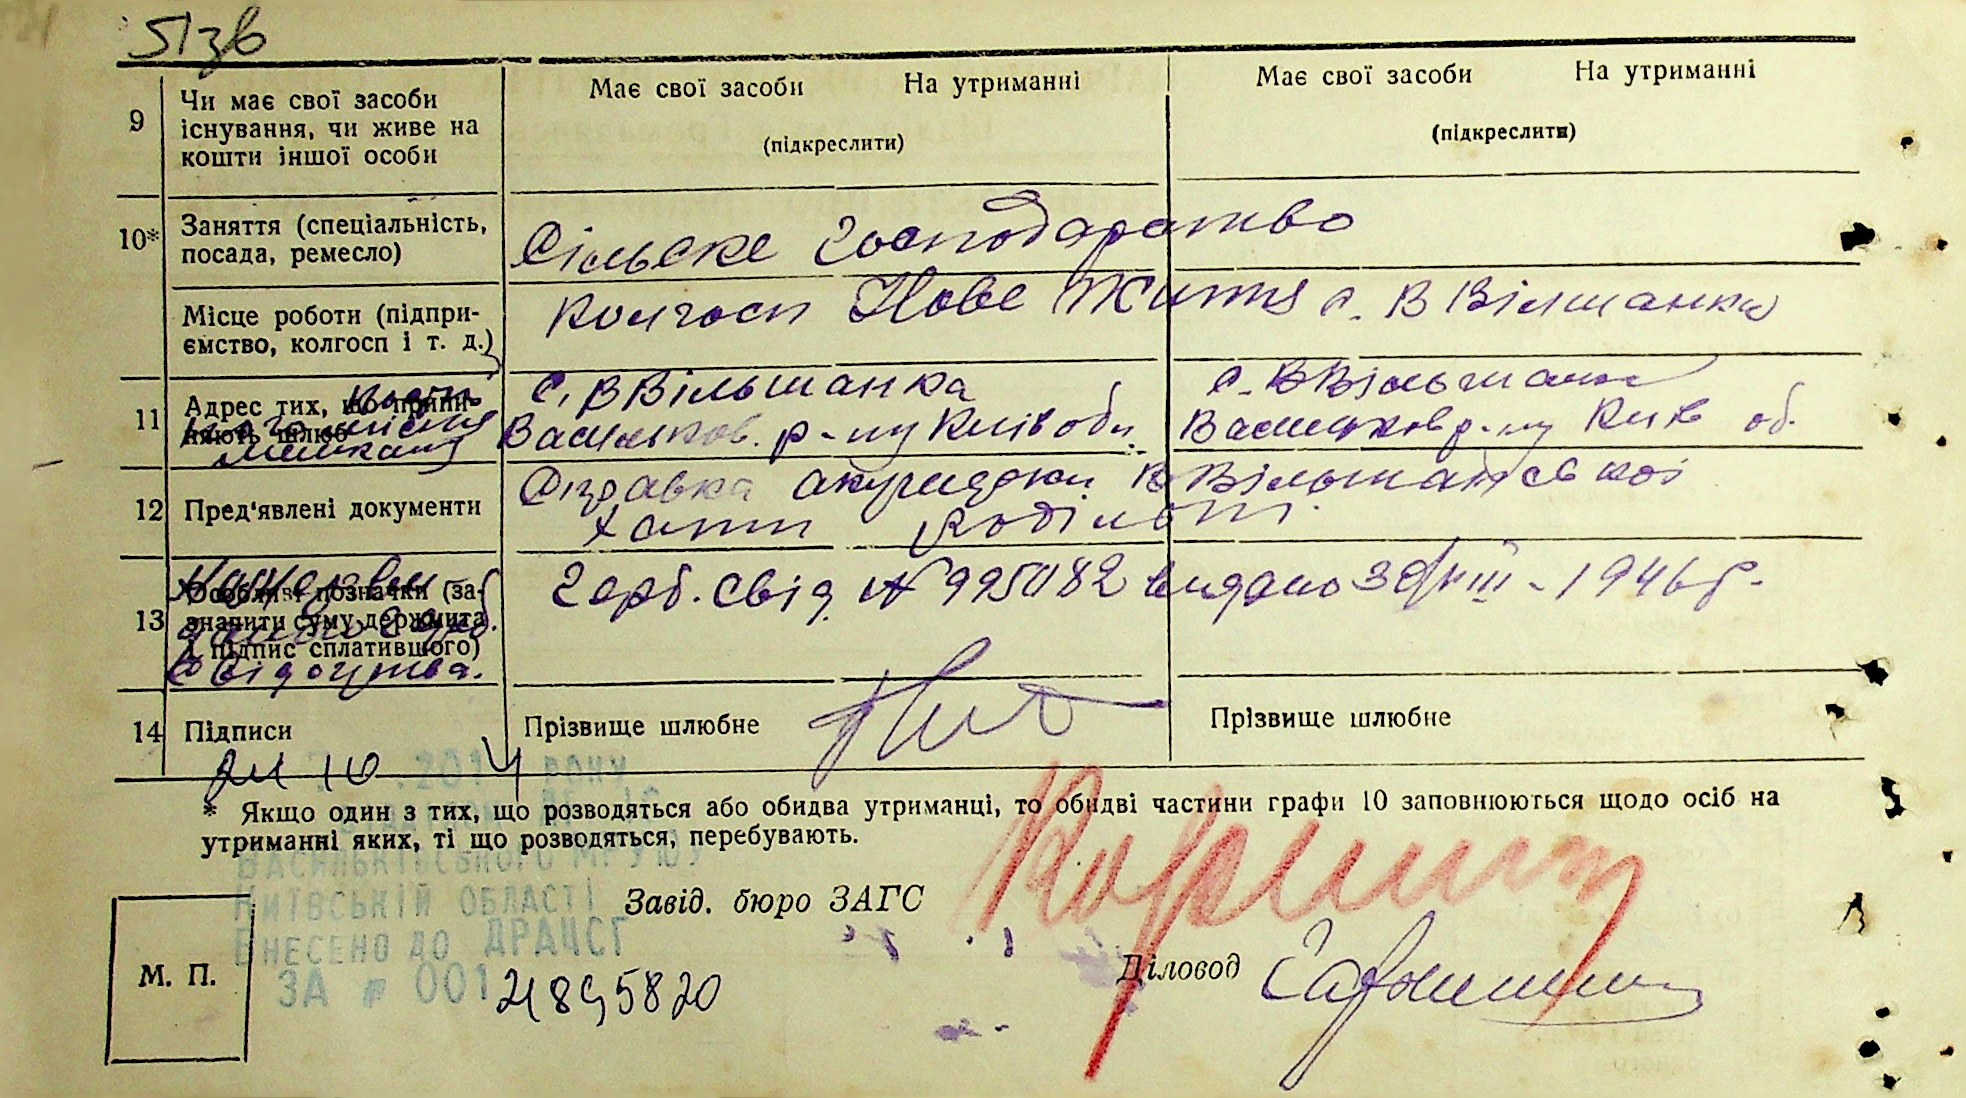 51зв
9 Чи має свої засоби існування, чи живе на кошти іншої особи
Має свої засоби На утриманні
(підкреслити)
Має свої засоби На утриманні
(підкреслити)
10* Заняття (спеціальність, посада, ремесло)
Сільське господарство
Місце роботи (підприємство, колгосп і т. д.)
Колгосп Нове Життя с. В Вільшанка
11 Адрес тих, що приймають шлюб
с. В Вільшанка
Васильков. р-ну Київ обл.
с. В Вільшанка
Васильков р-ну Київ об.
12 Пред'явлені документи
Справка акушерки В Вільшанської
хати родільні.
13 Особливі позначки (зазначити суму держмита і підпис сплатившого)
свідоцтва.
герб. свід. № 995182 видано 30/VIII - 1946 р.
14 Підписи
Прізвище шлюбне
Прізвище шлюбне
* Якщо один з тих, що розводяться або обидва утриманці, то обидві частини графи 10 заповнюються щодо осіб на
утриманні яких, ті що розводяться, перебувають.
Васильківського МРУЮ
Київській області
Внесено до ДРАЦСГ
за № 001 21895820
М. П.
Завід. бюро ЗАГС
Діловод